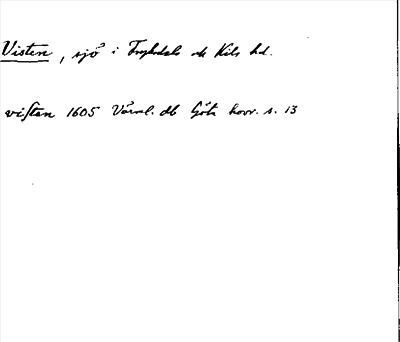 Visten, sjö i Fryksdals ok Kils hd.
visten 1605 Värml. db Göta hovr. s. 13